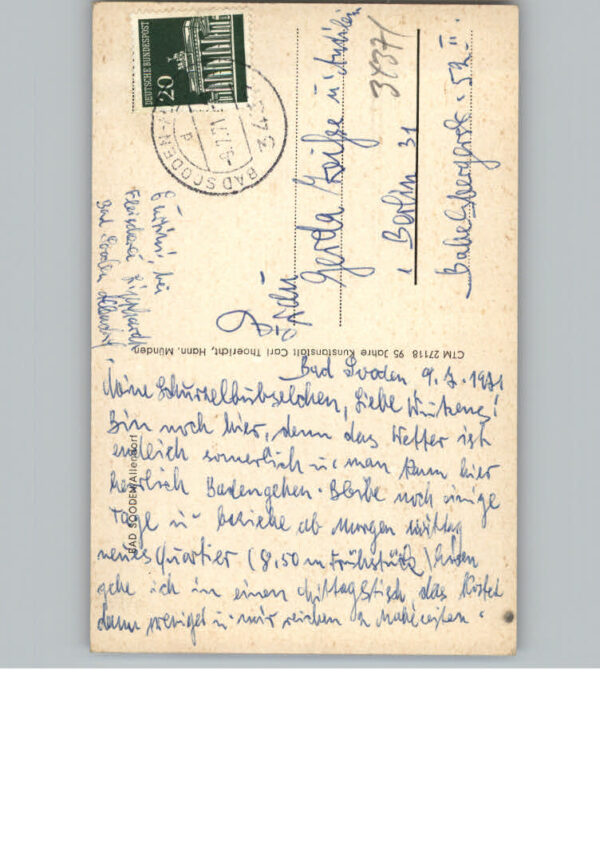 DEUTSCHE BUNDESPOST
20
BAD SOODEN-
-9.7.71
343
34371
An
Gerda u.
1 Berlin 31
Babelsbergerstr. 52 II.
bei
Fleischerei
Bad Sooden Allendorf
CTM 27118 95 Jahre Kunstanstalt Carl Thoericht, Hann. Münden
BAD SOODEN/Allendorf
Bad Sooden 9.7.1971
Meine, Liebe
Bin noch hier, denn das Wetter ist
endlich sommerlich u. man kann hier
herrlich Badengehen. Bleibe noch einige
Tage u. beziehe ab morgen mittag
neues Quartier (8,50 m Frühstück)
gehe ich in einen Mittagstisch, das kostet
dann weniger u. mir reichen 2 Mahlzeiten.